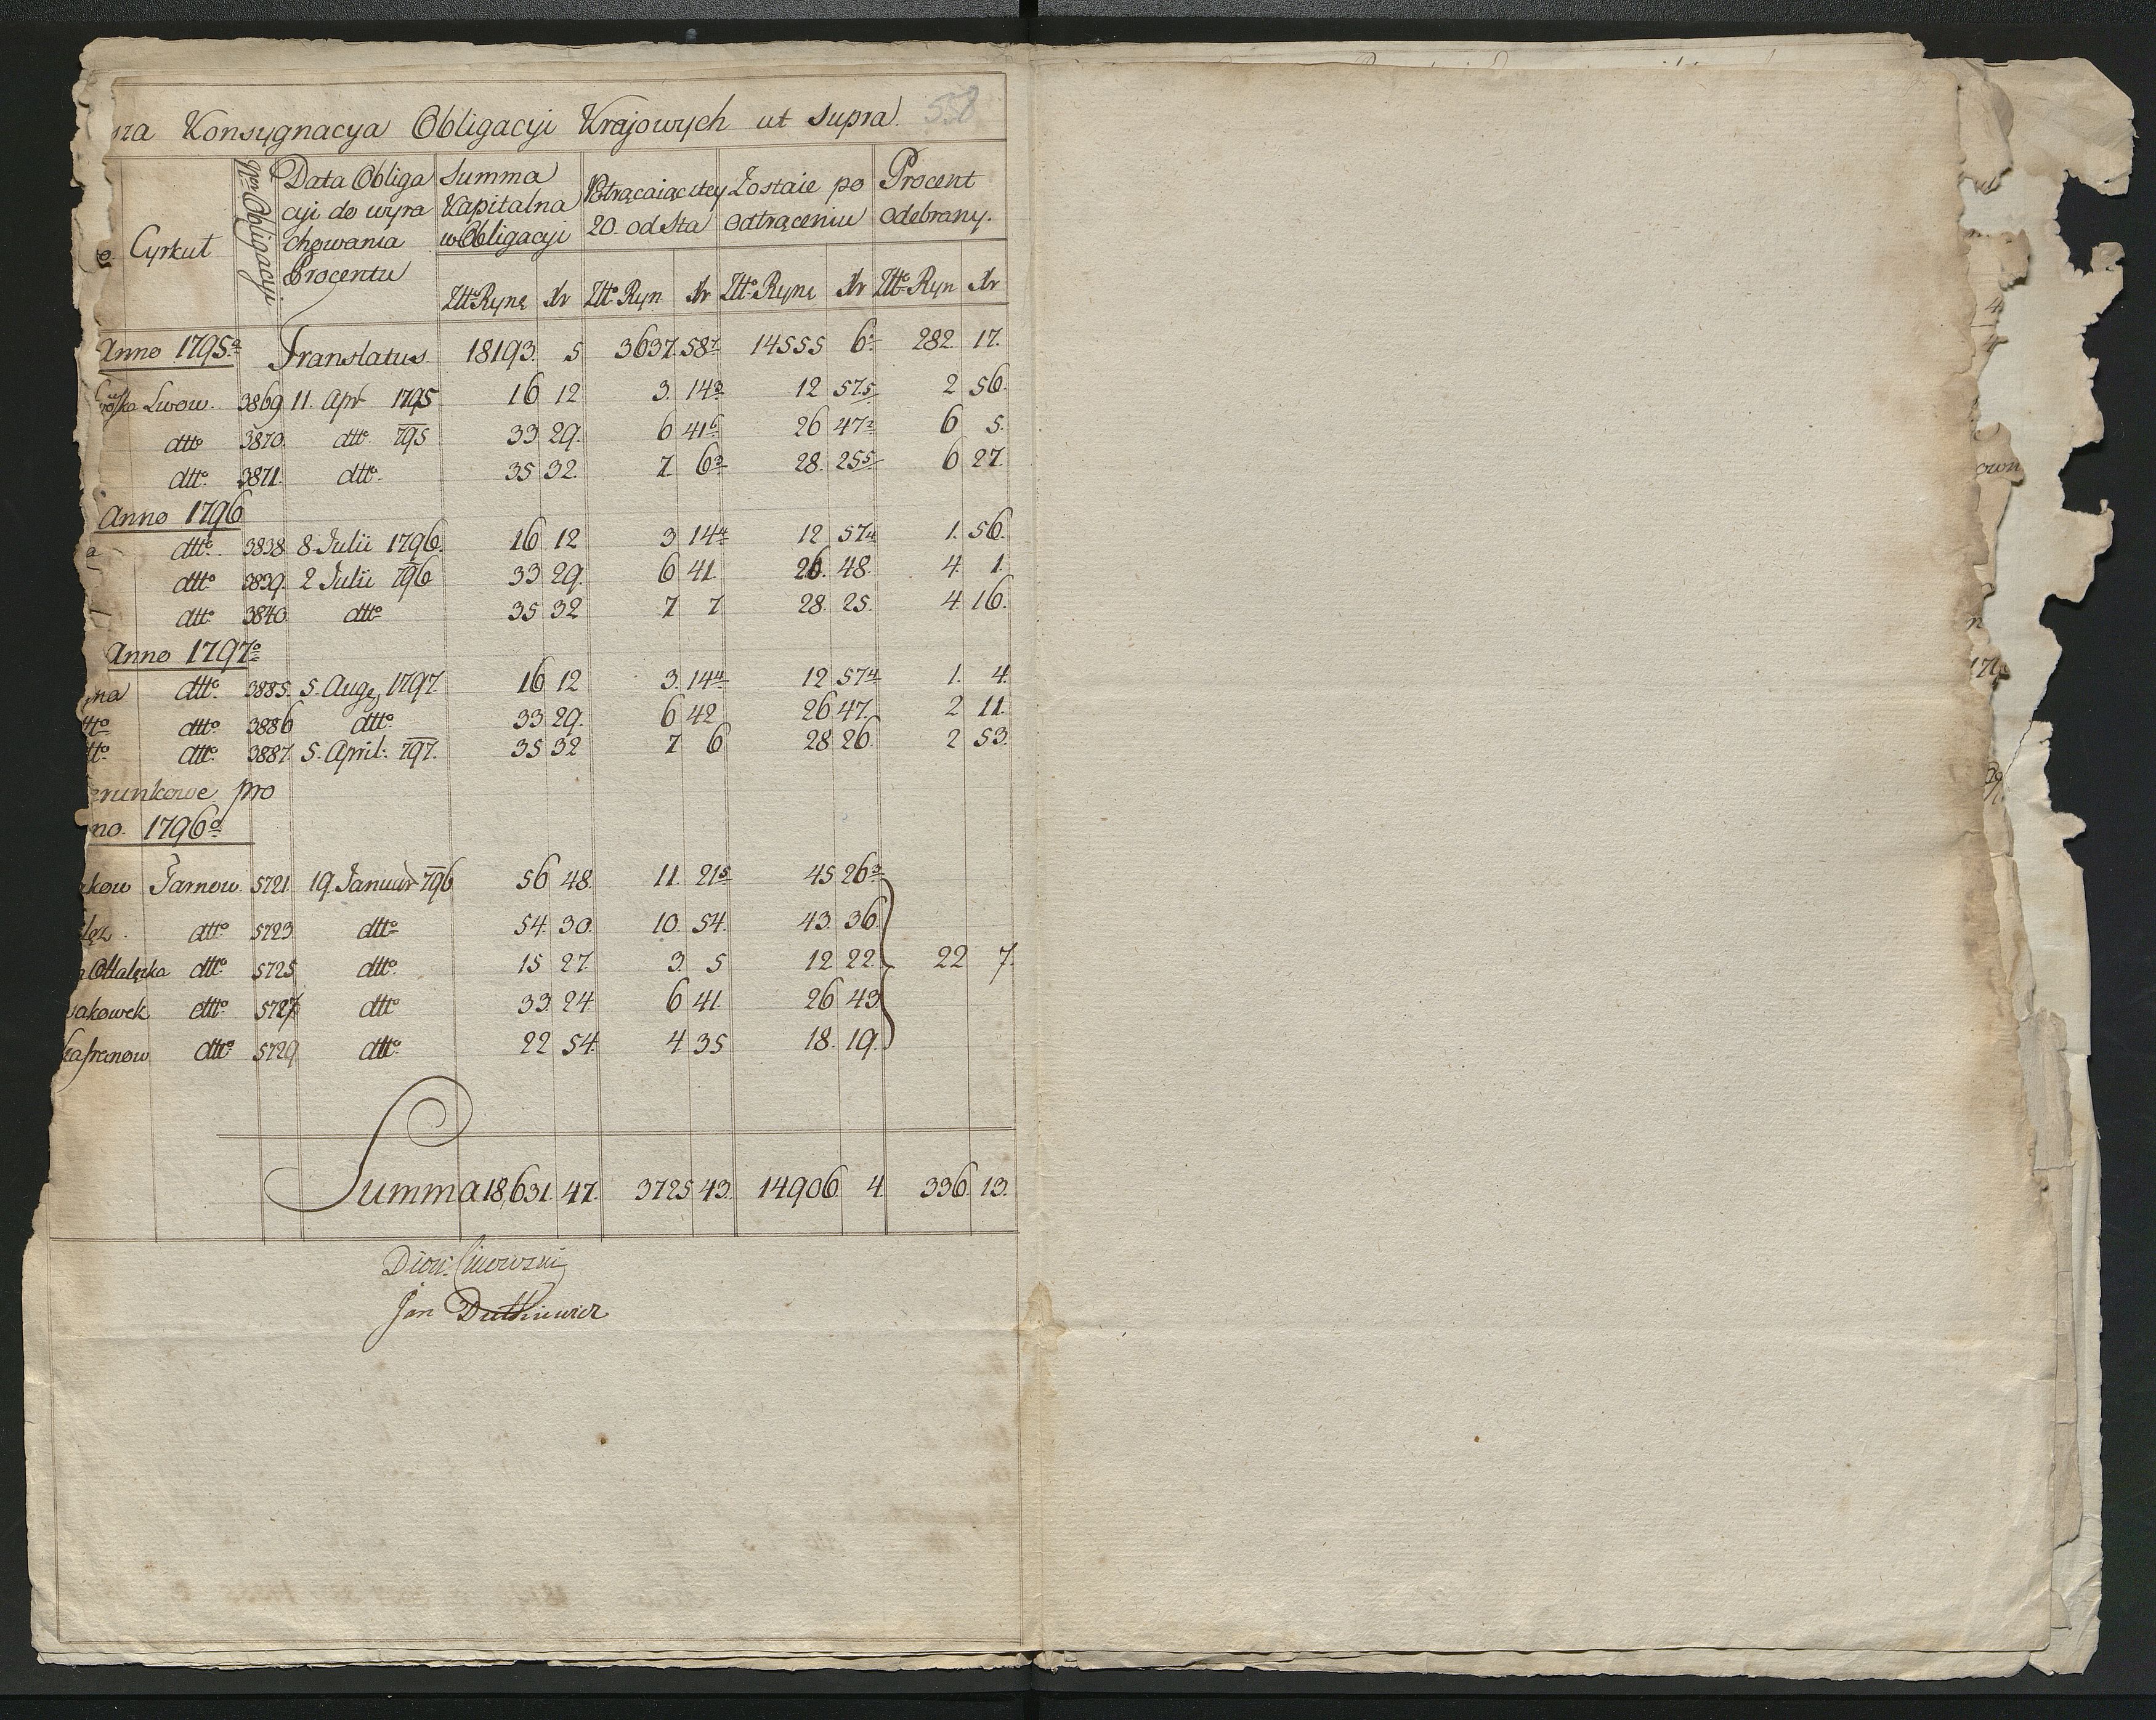 Konsygnacya Obligacyi Krajowych ut supra. 558
Cyrkuł
Nro Obligacyi
Data Obliga
cyi do wyra
chowania
Procentu
Summa
Kapitalna
w Obligacyi
Potrącaiąc itey
20. od Sta
Zostaie po
odtrąceniu
Procent
odebrany.
Złto Rynę Xr Złto Ryn Xr Złto Rynę Xr Złto Ryn Xr
Anno 1795 Translatus 18193. 5 3637. 58 14555 6 282 17.
Lwow. 3869 11. Apr 1795 16 12 3. 14 12 57 2 56.
dtto 3870. dtto 795 33 29. 6 41 26 47 6 5.
dtto 3871. dtto 35 32. 7. 6 28. 25 6 27.
Anno 1796
dtto 3838 8 Julii 1796. 16 12 3 14 12 57 1. 56.
dtto 3839. 2 Julii 796 33 29. 6 41. 26. 48. 4. 1.
dtto 3840 dtto 35 32 7 7 28. 25. 4. 16.
Anno 1797
dtto 3885. 5. Aug 1797 16 12 3. 14 12 57 1. 4.
dtto 3886 dtto 33 29. 6 42 26 47. 2 11.
dtto 3887. 5. April: 797. 35 32 7 6 28 26. 2 53.
runkowe pro
no. 1796
kow Tarnow. 5721 19. Januar 796 56 48. 11. 21 45 26
dtto 5723 dtto 54. 30. 10. 54. 43. 36
Małęcka dtto 5725 dtto 15 27. 3. 5 12 22. 22 7.
akowek dtto 5727 dtto 33. 24. 6 41. 26 43
dtto 5729 dtto 22 54. 4. 35 18. 19.
Summa 18,631. 47. 3725 43. 14906. 4. 336. 13.
Jan Dutkiewicz